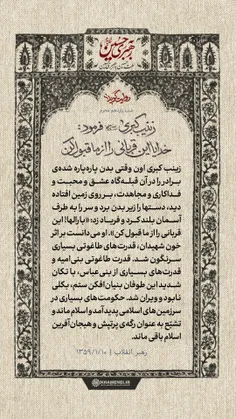 رهبری حسینی
روایتگری
زینب کبری فرمود:
خدایا این قربانی را از ما قبول کن
زینب کبری اون وقتی بدن پاره‌پاره شده‌ی
برادر را در آن قبله‌گاه عشق و محبت و
فداکاری و مجاهدت، بر روی زمین افتاده
دید، دستها را زیر بدن برد و سر را به طرف
آسمان بلند کرد و فریاد زد: «بارالها! این
قربانی را از ما قبول کن». او می‌دانست بر اثر
خون شهیدان، قدرت‌های طاغوتی بسیاری
سرنگون شد. قدرت‌های طاغوتی بنی‌امیه و
قدرت‌های بسیاری از بنی‌عباس، با تکان
شدید این طوفان بنیان‌افکن ستم، بکلی
نابود و ویران شد. حکومت‌های بسیاری در
سرزمین‌های اسلامی پدید آمد و اسلام ماند و
تشیّع به عنوان رگه‌ی پرتپش و هیجان‌آفرین
اسلام باقی ماند.
رهبر انقلاب | ۱۳۵۹/۱/۱۰
KHAMENEI.IR